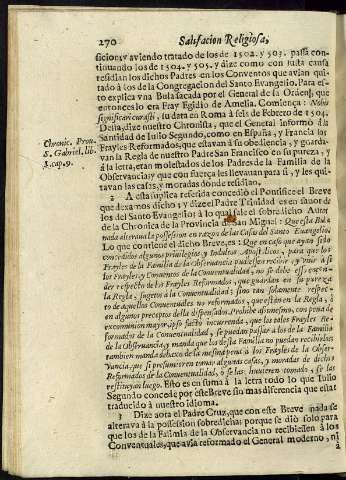 270 Satisfacion Religiosa,
sicion; y aviendo tratado de los de 1502. y 503. passa con-
tinuando los de 1504. y 505. y dize como con justa causa
residian los dichos Padres en los Conventos que avian qui-
tado à los de la Congregacion del Santo Evangelio. Para es-
to explica vna Bula sacada por el General de la Orden, que
entonces lo era Fray Egidio de Amelia. Comiença: Nobis
significari curasti, su data en Roma à seis de Febrero de 1504.
Della, dize nuestro Chronista, que el General informò à la
Santidad de Iulio Segundo, como en España, y Francia los
Frayles Reformados, que estavan à su obediencia, y guarda-
van la Regla de nuestro Padre San Francisco en su pureza, y
à la letra, eran molestados de los Padres de la Familia de la
Observancia; y que con fuerça les llevavan para sì, y les qui-
tavan las casas, y moradas donde residian.
Chronic. Prou.
S. Gabriel. lib.
3. cap. 9.
2 A esta suplica referida concediò el Pontifice el Breve
que dexamos dicho; y dize el Padre Trinidad es en favor de
los del Santo Evangelio; à lo qual sale el sobredicho Autor
de la Chronica de la Provincia de San Miguel: Que esta Bula
nada alterava la possession en razon de las Casas del Santo Evangelio.
Lo que contiene el dicho Breve, es: Que en caso que ayan sido
concedidos algunos privilegios, y Indultos Apostolicos, para que los
Frayles de la Familia de la Observancia puedan recibir, y unir à sì
Frayles, y Conventos de la Conventualidad, no se debe esso enten-
der respecto de los Frayles Reformados, que guardan en su pureza
la Regla, sugetos à la Conventualidad; sino tan solamente respec-
to de aquellos Conventuales no reformados, que estàn en la Regla, ò
en algunos preceptos della dispensados. Prohibe assimismo, con pena de
excomunion mayor, ipso facto incurrenda, que los tales Frayles Re-
formados de la Conventualidad, se puedan passar à los de la Familia
de la Observancia, y manda que los desta Familia no puedan recibirlos.
tambien manda debaxo de la mesma pena à los Frayles de la Obser-
vancia, que si presumieren tomar algunas casas, y moradas de dichos
Reformados de la Conventualidad, ò se las huvieren tomado, se las
restituyan luego. Esto es en suma à la letra todo lo que Iulio
Segundo concede por este Breve sin mas diferencia que estar
traducido à nuestro idioma.
3 Dize aora el Padre Cruz, que con este Breve nada se
alterava à la possession sobredicha: porque se diò solo para
que los de la Familia de la Observancia no recibiessen à los
Conventuales, que avia reformado el General moderno, ni
à